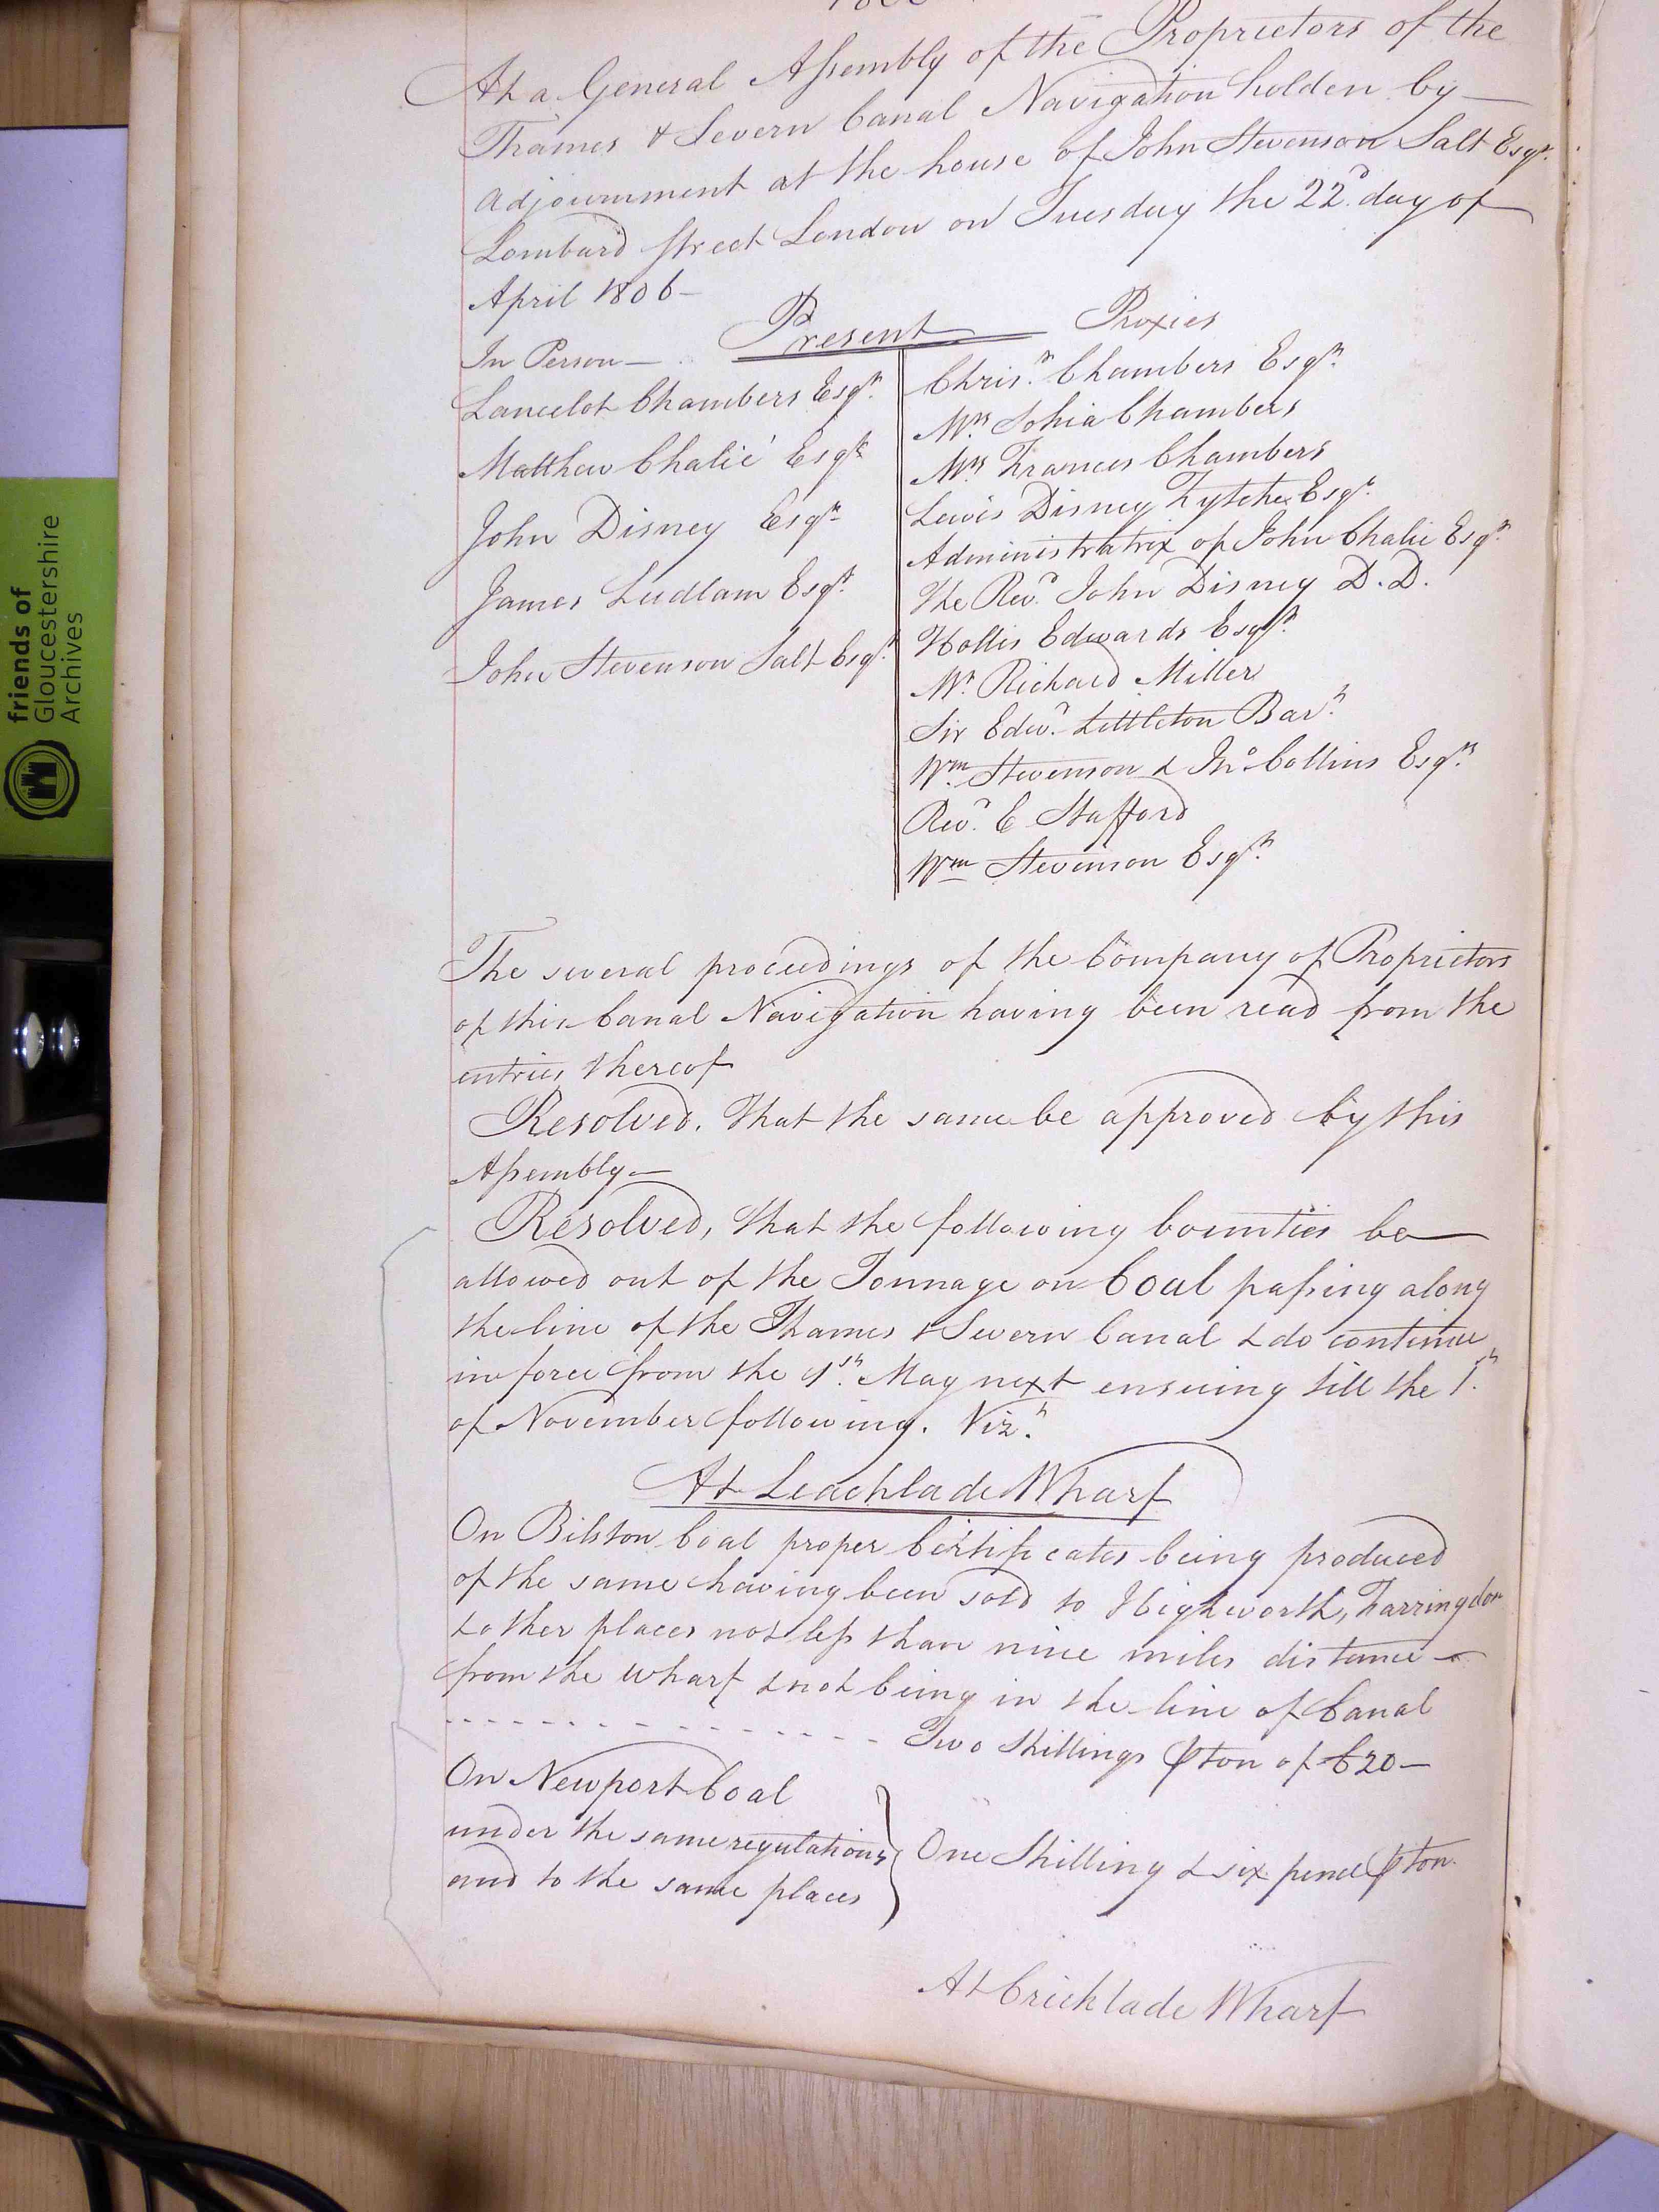 At a General Assembly of the Proprietors of the
Thames & Severn Canal Navigation holden by
adjournment at the house of John Stevenson Salt Esqr.
Lombard Street London on Tuesday the 22d. day of
April 1806
Present
In Person
Lancelot Chambers Esqr.
Matthew Chalié Esqr.
John Disney Esqr.
James Ludlam Esqr.
John Stevenson Salt Esqr.
Proxies
Chrisr. Chambers Esqr.
Mrs. Sophia Chambers
Mrs. Frances Chambers
Lewis Disney Fytche Esqr.
Administratrix of John Chalie Esqr.
The Revd. John Disney D.D.
Hollis Edwards Esqr.
Mr. Richard Miller
Sir Edwd. Littleton Bart.
Wm. Stevenson & Jno. Collins Esqrs.
Revd. E Stafford
Wm Stevenson Esqr.
The several proceedings of the Company of Proprietors
of this Canal Navigation having been read from the
entries thereof
Resolved. That the same be approved by this
Assembly—
Resolved, That the following bounties be
allowed out of the Tonnage on Coal passing along
the line of the Thames & Severn Canal & do continue
in force from the 1st. May next ensuing till the 1st.
of November following. Vizt.
At Leachlade Wharf
On Bilston Coal proper Certificates being produced
of the same having been sold to Highworth, Farringdon
& other places not less than nine miles distance
from the wharf & not being in the line of Canal
- - - - - - - - - - - - - - Two Shillings ⅌ ton of C20—
On Newport Coal
under the same regulations
and to the same places
One Shilling & six pence ⅌ ton.
At Cricklade Wharf
friends of
Gloucestershire
Archives